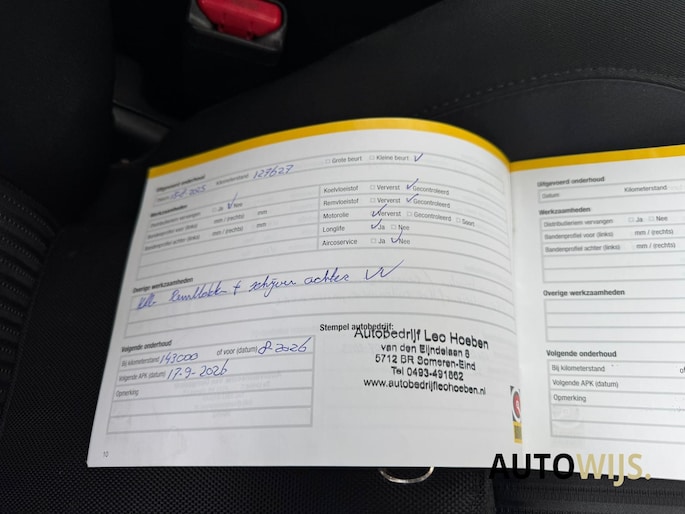 Uitgevoerd onderhoud
Datum 2025 Kilometerstand 127627 Grote beurt Kleine beurt
Werkzaamheden
Distributieriem vervangen Ja Nee
Bandenprofiel voor (links) mm / (rechts) mm
Bandenprofiel achter (links) mm / (rechts) mm
Koelvloeistof Ververst Gecontroleerd
Remvloeistof Ververst Gecontroleerd
Motorolie Ververst Gecontroleerd Soort
Longlife Ja Nee
Aircoservice Ja Nee
Overige werkzaamheden
Remblokken + schijven achter VV
Volgende onderhoud
Bij kilometerstand 143000 of voor (datum) 8-2026
Volgende APK (datum) 17-9-2026
Opmerking
Stempel autobedrijf:
Autobedrijf Leo Hoeben
van den Eijndelaan 8
5712 BR Someren-Eind
Tel 0493-491862
www.autobedrijfleohoeben.nl
10
Uitgevoerd onderhoud
Datum Kilometerstand
Werkzaamheden
Distributieriem vervangen Ja Nee
Bandenprofiel voor (links) mm / (rechts)
Bandenprofiel achter (links) mm / (rechts)
Overige werkzaamheden
Volgende onderhoud
Bij kilometerstand of
Volgende APK (datum)
Opmerking
AUTOWIJS.